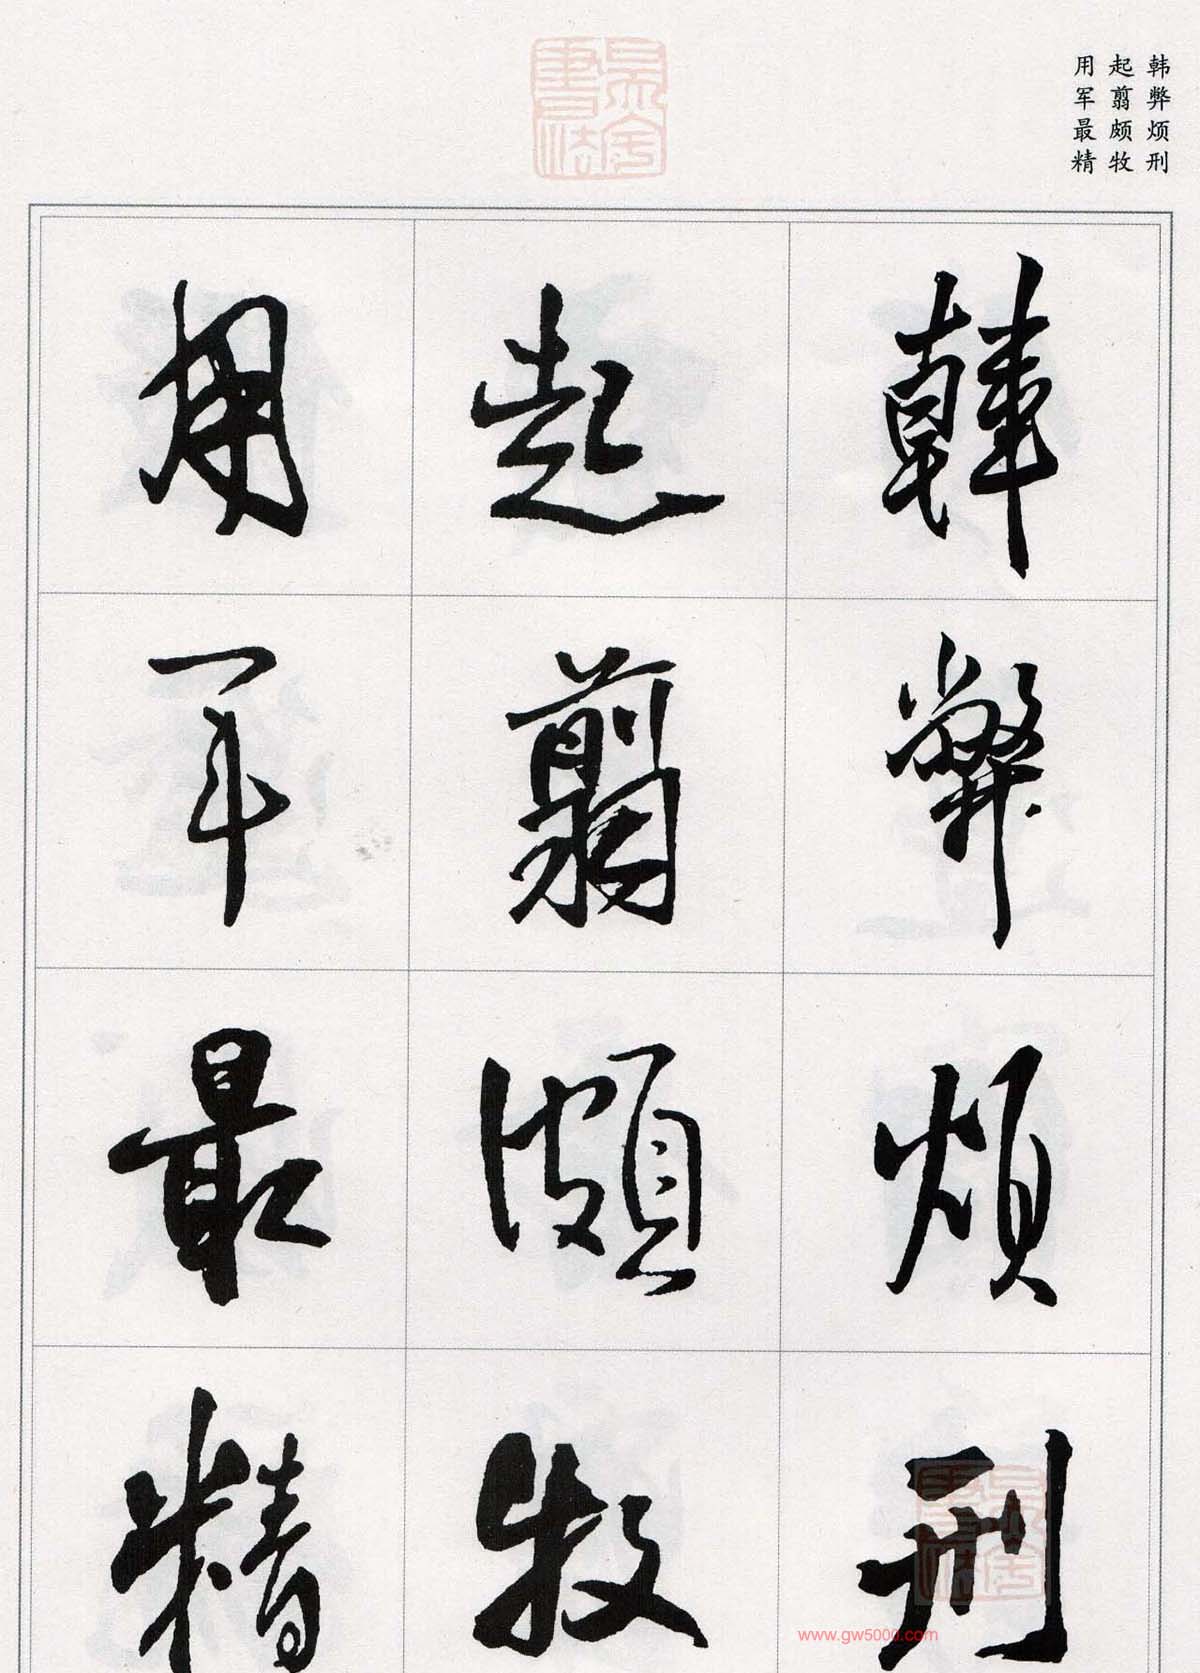 韩弊烦刑
起翦颇牧
用军最精
韓弊煩刑
起翦頗牧
用軍最精
www.gw5000.com